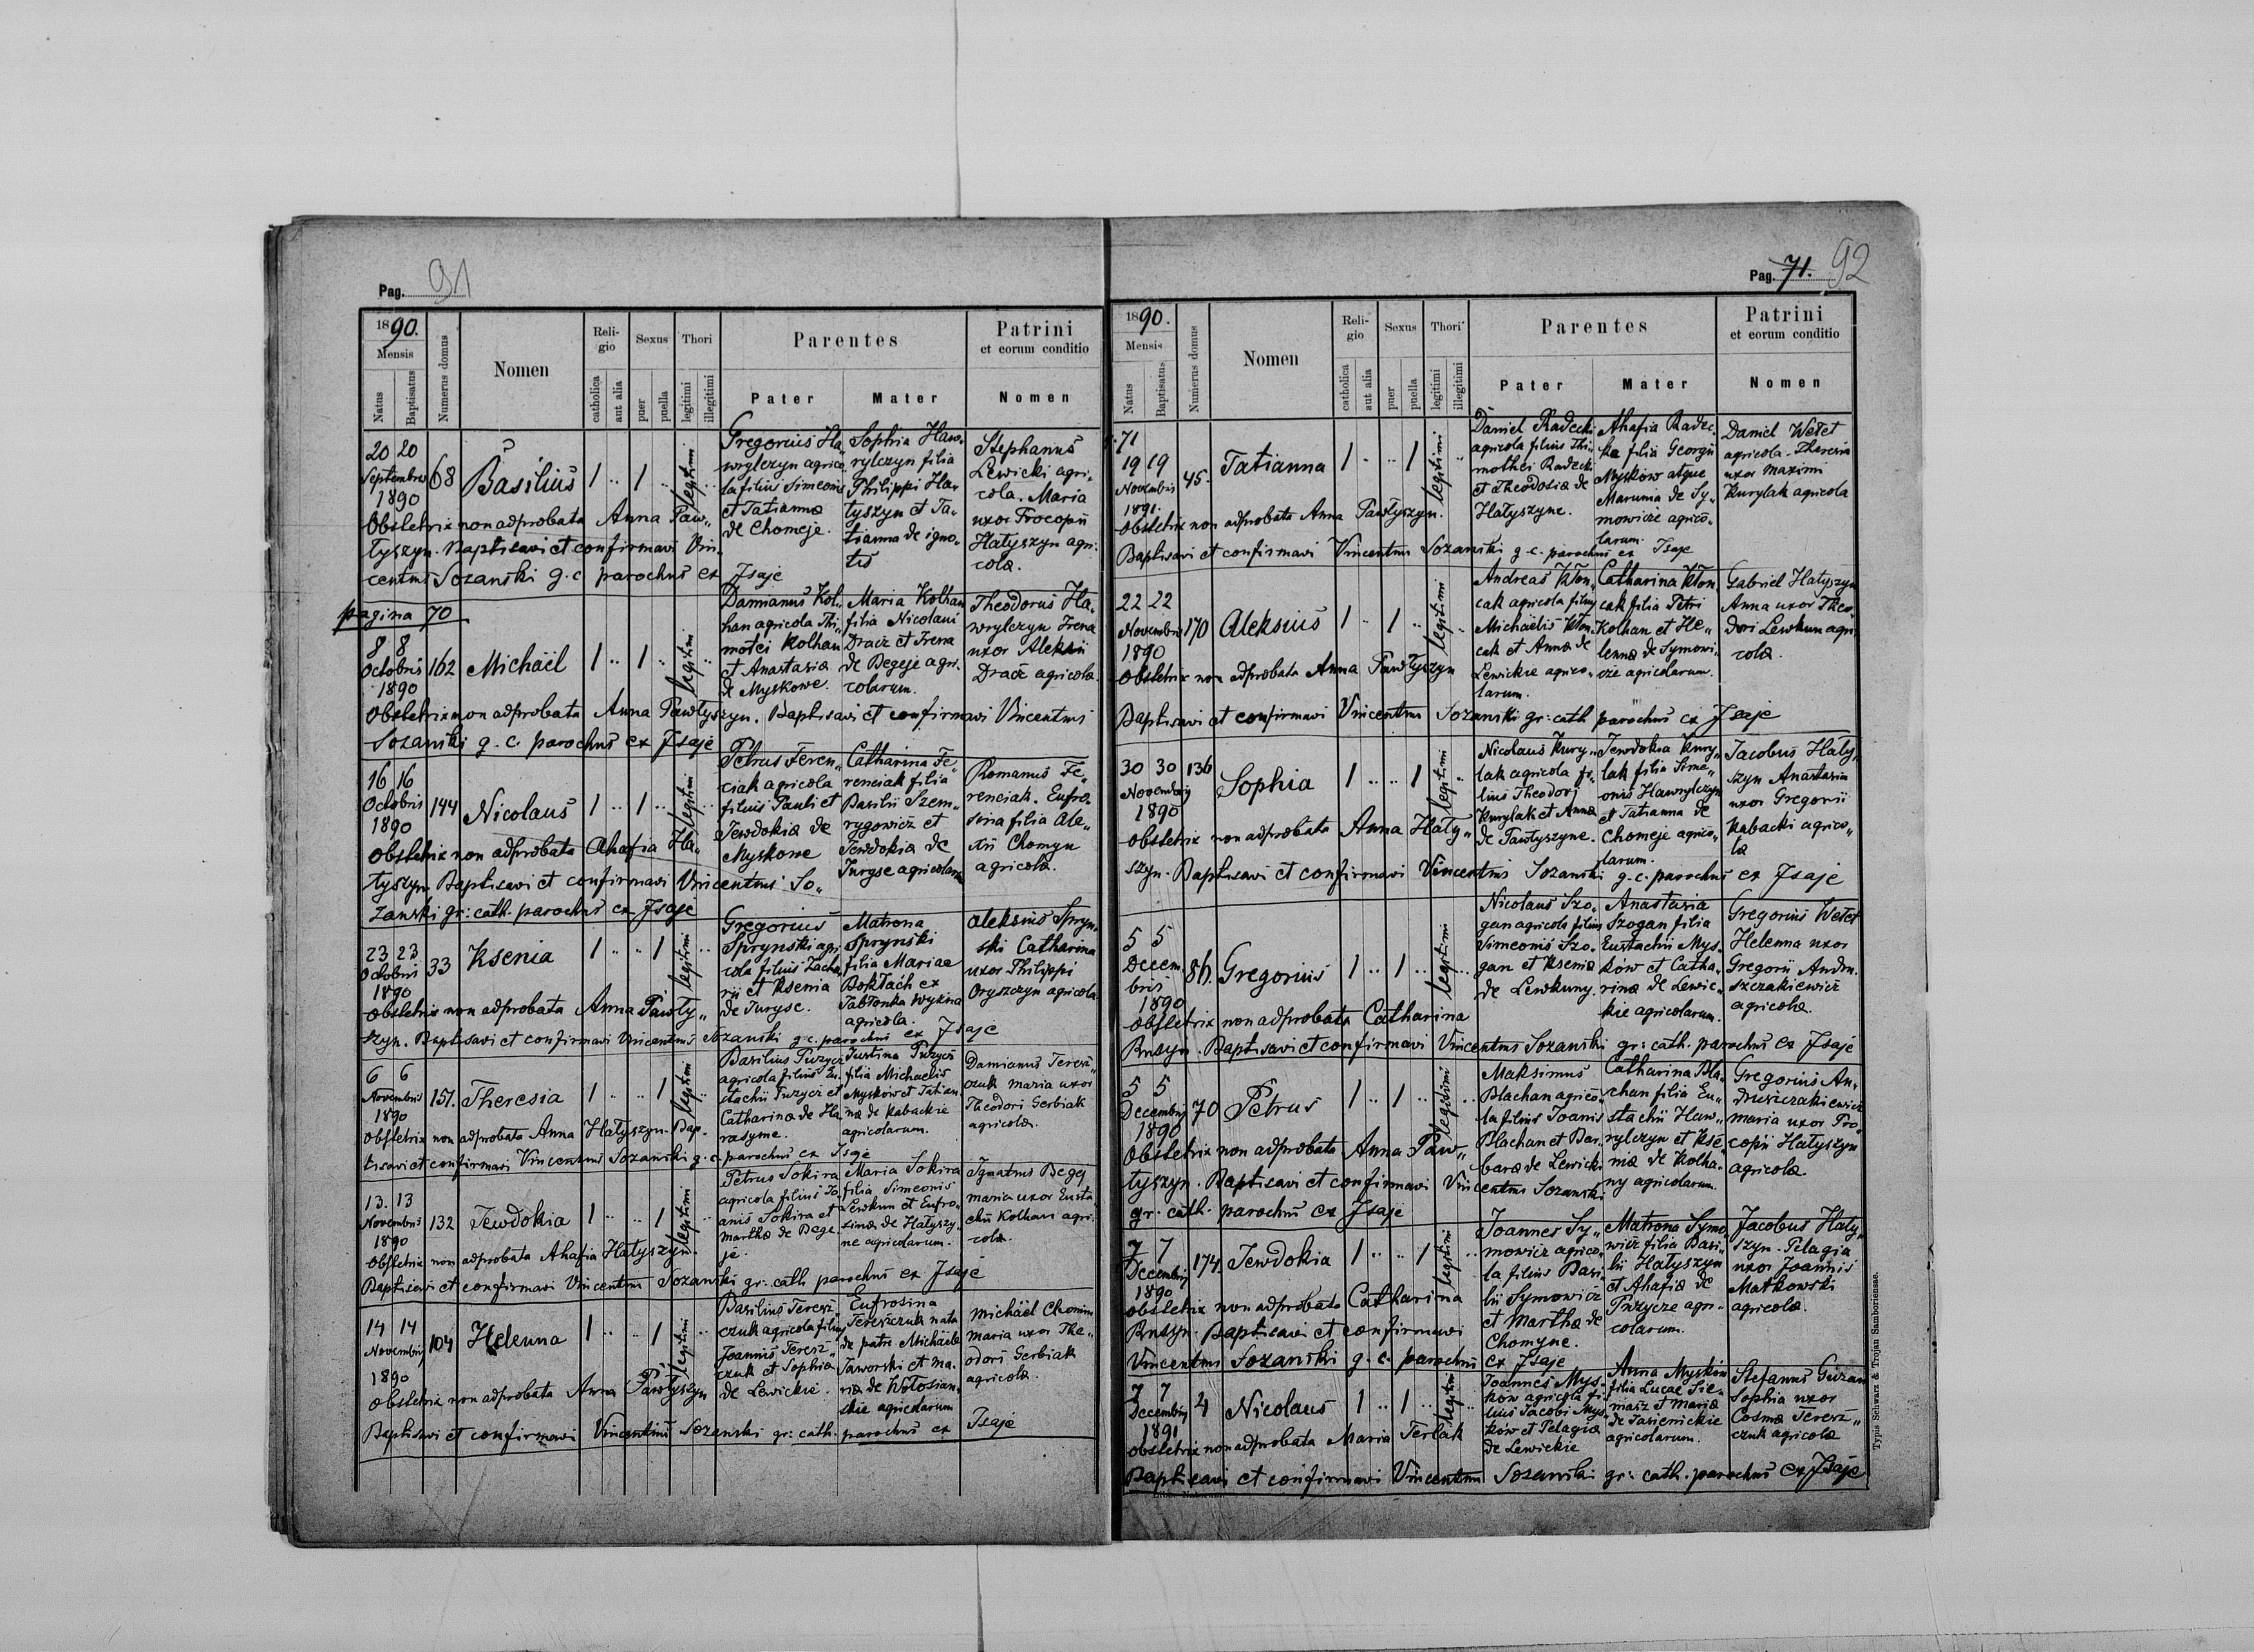 Pag. 91
1890.
Mensis
Natus
Baptisatus
Numerus domus
Nomen
Reli-
gio
catholica
aut alia
Sexus
puer
puella
Thori
legitimi
illegitimi
Parentes
Pater
Mater
Patrini
et eorum conditio
Nomen
20 20
Septembris
1890
68
Basilius
1 .. 1 ..
legitimi
Gregorius Ha„
wrylczyn agrico„
la filius Simeonis
et Tatianna
de Chomeje.
Sophia Haw„
rylczyn filia
Philippi Ha„
tyszyn et Ta„
tianna de igno„
tis
Stephanus
Lewicki agri„
cola. Maria
uxor Procopii
Hatyszyn agri„
colæ.
Obstetrix non adprobata Anna Paw„
tyszyn. Baptisavi et confirmavi Vin„
centius Sozanski g.c parochus ex Isaje
pagina 70
8 8
Octobris
1890
162
Michaël
1 .. 1 ..
legitimi
Damianus Kol„
han agricola Thi„
motei Kolhan
et Anastasia
de Myskowe.
Maria Kolhan
filia Nicolaui
Dracz et Irena
de Begeje agri„
colarum.
Theodorus Ha„
wrylczyn Irena
uxor Aleksii
Dracz agricolæ.
Obstetrix non adprobata Anna Pawtyszyn. Baptisavi et confirmavi Vincentius
Sozanski g. c. parochus ex Isaje
16 16
Octobris
1890
144
Nicolaus
1 .. 1 ..
legitimi
Petrus Feren„
ciak agricola
filius Pauli et
Jewdokia de
Myskowe
Catharina Fe„
renciak filia
Basilii Szem„
rygowicz et
Jewdokia de
Turyse agricolarum
Romanus Fe„
renciak. Eufro„
sina filia Ale„
xii Chomyn
agricolæ.
Obstetrix non adprobata Ahafia Ha„
tyszyn. Baptisavi et confirmavi Vincentius So„
zanski gr: cath. parochus ex Isaje
23 23
Octobris
1890
33
Ksenia
1 .. .. 1
legitimi
Gregorius
Sprynski agri„
cola filius Zacha„
rii et Ksenia
de Turyse.
Matrona
Sprynski
filia Mariae
Boktach ex
Jabłonka Wyżna
agricola.
Aleksius Spryn„
ski Catharina
uxor Philippi
Oryszczyn agricolæ
Obstetrix non adprobata Anna Pawty„
szyn. Baptisavi et confirmavi Vincentius Sozanski g.c. parochus ex Isaje
6 6
Novembris
1890
151.
Theresia
1 .. .. 1
legitimi
Basilius Puzycz
agricola filius Eu„
stachii Puzycz et
Catharinæ de Ha„
rasyme.
Justina Puzycz
filia Michaelis
Myskow et Tatian„
næ de Kabackie
agricolarum.
Damianus Teresz„
czuk Maria uxor
Theodori Serbiak
agricolæ.
Obstetrix non adprobata Anna Hatyszyn. Bap„
tisavi et confirmavi Vincentius Sozanski g.c. parochus ex Isaje
13. 13
Novembris
1890
132
Jewdokia
1 .. .. 1
legitimi
Petrus Sokira
agricola filius Jo„
anis Sokira et
Martha de Bege„
je.
Maria Sokira
filia Simeonis
Lewkun et Eufro„
sinæ de Hatyszy„
ne agricolarum.
Ignatius Begej
Maria uxor Eusta„
chii Kolhan agri„
colæ.
Obstetrix non adprobata Ahafia Hatyszyn.
Baptisavi et confirmavi Vincentius Sozanski gr: cath parochus ex Isaje
14 14
Novembris
1890
104
Helenna
1 .. .. 1
legitimi
Basilius Teresz„
czuk agricola filius
Joannis Teresz„
czuk et Sophia
de Lewickie.
Eufrosina
Tereszczuk nata
de patre Michaele
Jaworski et Ma„
ria de Wołosian„
skie agricolarum
Michaël Chomin
Maria uxor The„
odori Serbiak
agricolæ.
Obstetrix non adprobata Anna Pawtyszyn
Baptisavi et confirmavi Vincentius Sozanski gr: cath. parochus ex Isaje
Pag. 71. 92
1890.
Mensis
Natus
Baptisatus
Numerus domus
Nomen
Reli-
gio
catholica
aut alia
Sexus
puer
puella
Thori
legitimi
illegitimi
Parentes
Pater
Mater
Patrini
et eorum conditio
Nomen
71
19 19
Novembris
1891.
45.
Tatianna
1 .. .. 1
legitimi
Daniel Radecki
agricola filius Thi„
mothei Radecki
et Theodosia de
Hatyszyne.
Ahafia Radec„
ka filia Georgii
Myskow atque
Marunia de Sy„
mowicze agrico„
larum.
Daniel Wetet
agricola. Theresia
uxor Maximi
Kurylak agricola
Obstetrix non adprobata Anna Pawtyszyn.
Baptisavi et confirmavi Vincentius Sozanski g.c. parochus ex Isaje
22 22
Novembris
1890
170
Aleksius
1 .. 1 ..
legitimi
Andreas Kton„
cak agricola filius
Michaëlis Kton„
cak et Anna de
Lewickie agrico„
larum.
Catharina Kton„
cak filia Petri
Kolhan et He„
lenna de Symowi„
cze agricolarum.
Gabriel Hatyszyn
Anna uxor Theo„
dori Lewkun agri„
colæ.
Obstetrix non adprobata Anna Pawtyszyn
Baptisavi et confirmavi Vincentius Sozanski gr: cath parochus ex Isaje
30 30
Novembris
1890
136
Sophia
1 .. .. 1
legitimi
Nicolaus Kury„
lak agricola fi„
lius Theodorj
Kurylak et Anna
de Pawtyszyne.
Jewdokia Kury„
lak filia Sime„
onis Hawrylczyn
et Tatianna de
Chomeje agrico„
larum.
Jacobus Haty„
szyn Anastasia
uxor Gregorii
Kabacki agrico„
læ
Obstetrix non adprobata Anna Haty„
szyn. Baptisavi et confirmavi Vincentius Sozanski g.c. parochus ex Isaje
5 5
Decem„
bris
1890
86.
Gregorius
1 .. 1 ..
legitimi
Nicolaus Szo„
gan agricola filius
Simeonis Szo„
gan et Ksenia
de Lewkuny.
Anastasia
Szogan filia
Eustachii Mys„
ków et Catha„
rina de Lewic„
kie agricolarum.
Gregorius Wetet
Helenna uxor
Gregorii Andru„
szczakiewicz
agricolæ.
Obstetrix non adprobata Catharina
Brusyn. Baptisavi et confirmavi Vincentius Sozanski gr: cath. parochus ex Isaje
5 5
Decembris
1890
70
Petrus
1 .. 1 ..
legitimi
Maksimus
Blachan agrico„
la filius Joanis
Blachan et Bar„
bara de Lewicki
Catharina Bla„
chan filia Eu„
stachii Haw„
rylczyn et Kse„
nia de Kolha„
ny agricolarum.
Gregorius An„
druszczakiewicz
Maria uxor Pro„
copii Hatyszyn
agricolæ.
Obstetrix non adprobata Anna Paw„
tyszyn. Baptisavi et confirmavi Vincentius Sozanski
gr: cath. parochus ex Isaje
7 7
Decembris
1890
174.
Jewdokia
1 .. .. 1
legitimi
Joannes Sy„
mowicz agrico„
la filius Basi„
lii Symowicz
et Martha de
Chomyne.
Matrona Symo„
wicz filia Basi„
lii Hatyszyn
et Ahafia de
Puzycze agri„
colarum.
Jacobus Haty„
szyn. Pelagia
uxor Joannis
Matkowski
agricolæ.
Obstetrix non adprobata Catharina
Brusyn. Baptisavi et confirmavi
Vincentius Sozanski g. c. parochus ex Isaje
7 7
Decembris
1891
4
Nicolaus
1 .. 1 ..
legitimi
Joannes Mys„
ków agricola fi„
lius Jacobi Mys„
ków et Pelagia
de Lewickie
Anna Myskow
filia Lucae Sie„
masz et Maria
de Jasienickie
agricolarum.
Stefanus Guzan
Sophia uxor
Cosmæ Teresz„
czuk agricolæ
Obstetrix non adprobata Maria Terlak
Baptisavi et confirmavi Vincentius Sozanski gr: cath. parochus ex Isaje
Typis Schwarz & Trojan Samboriensae.